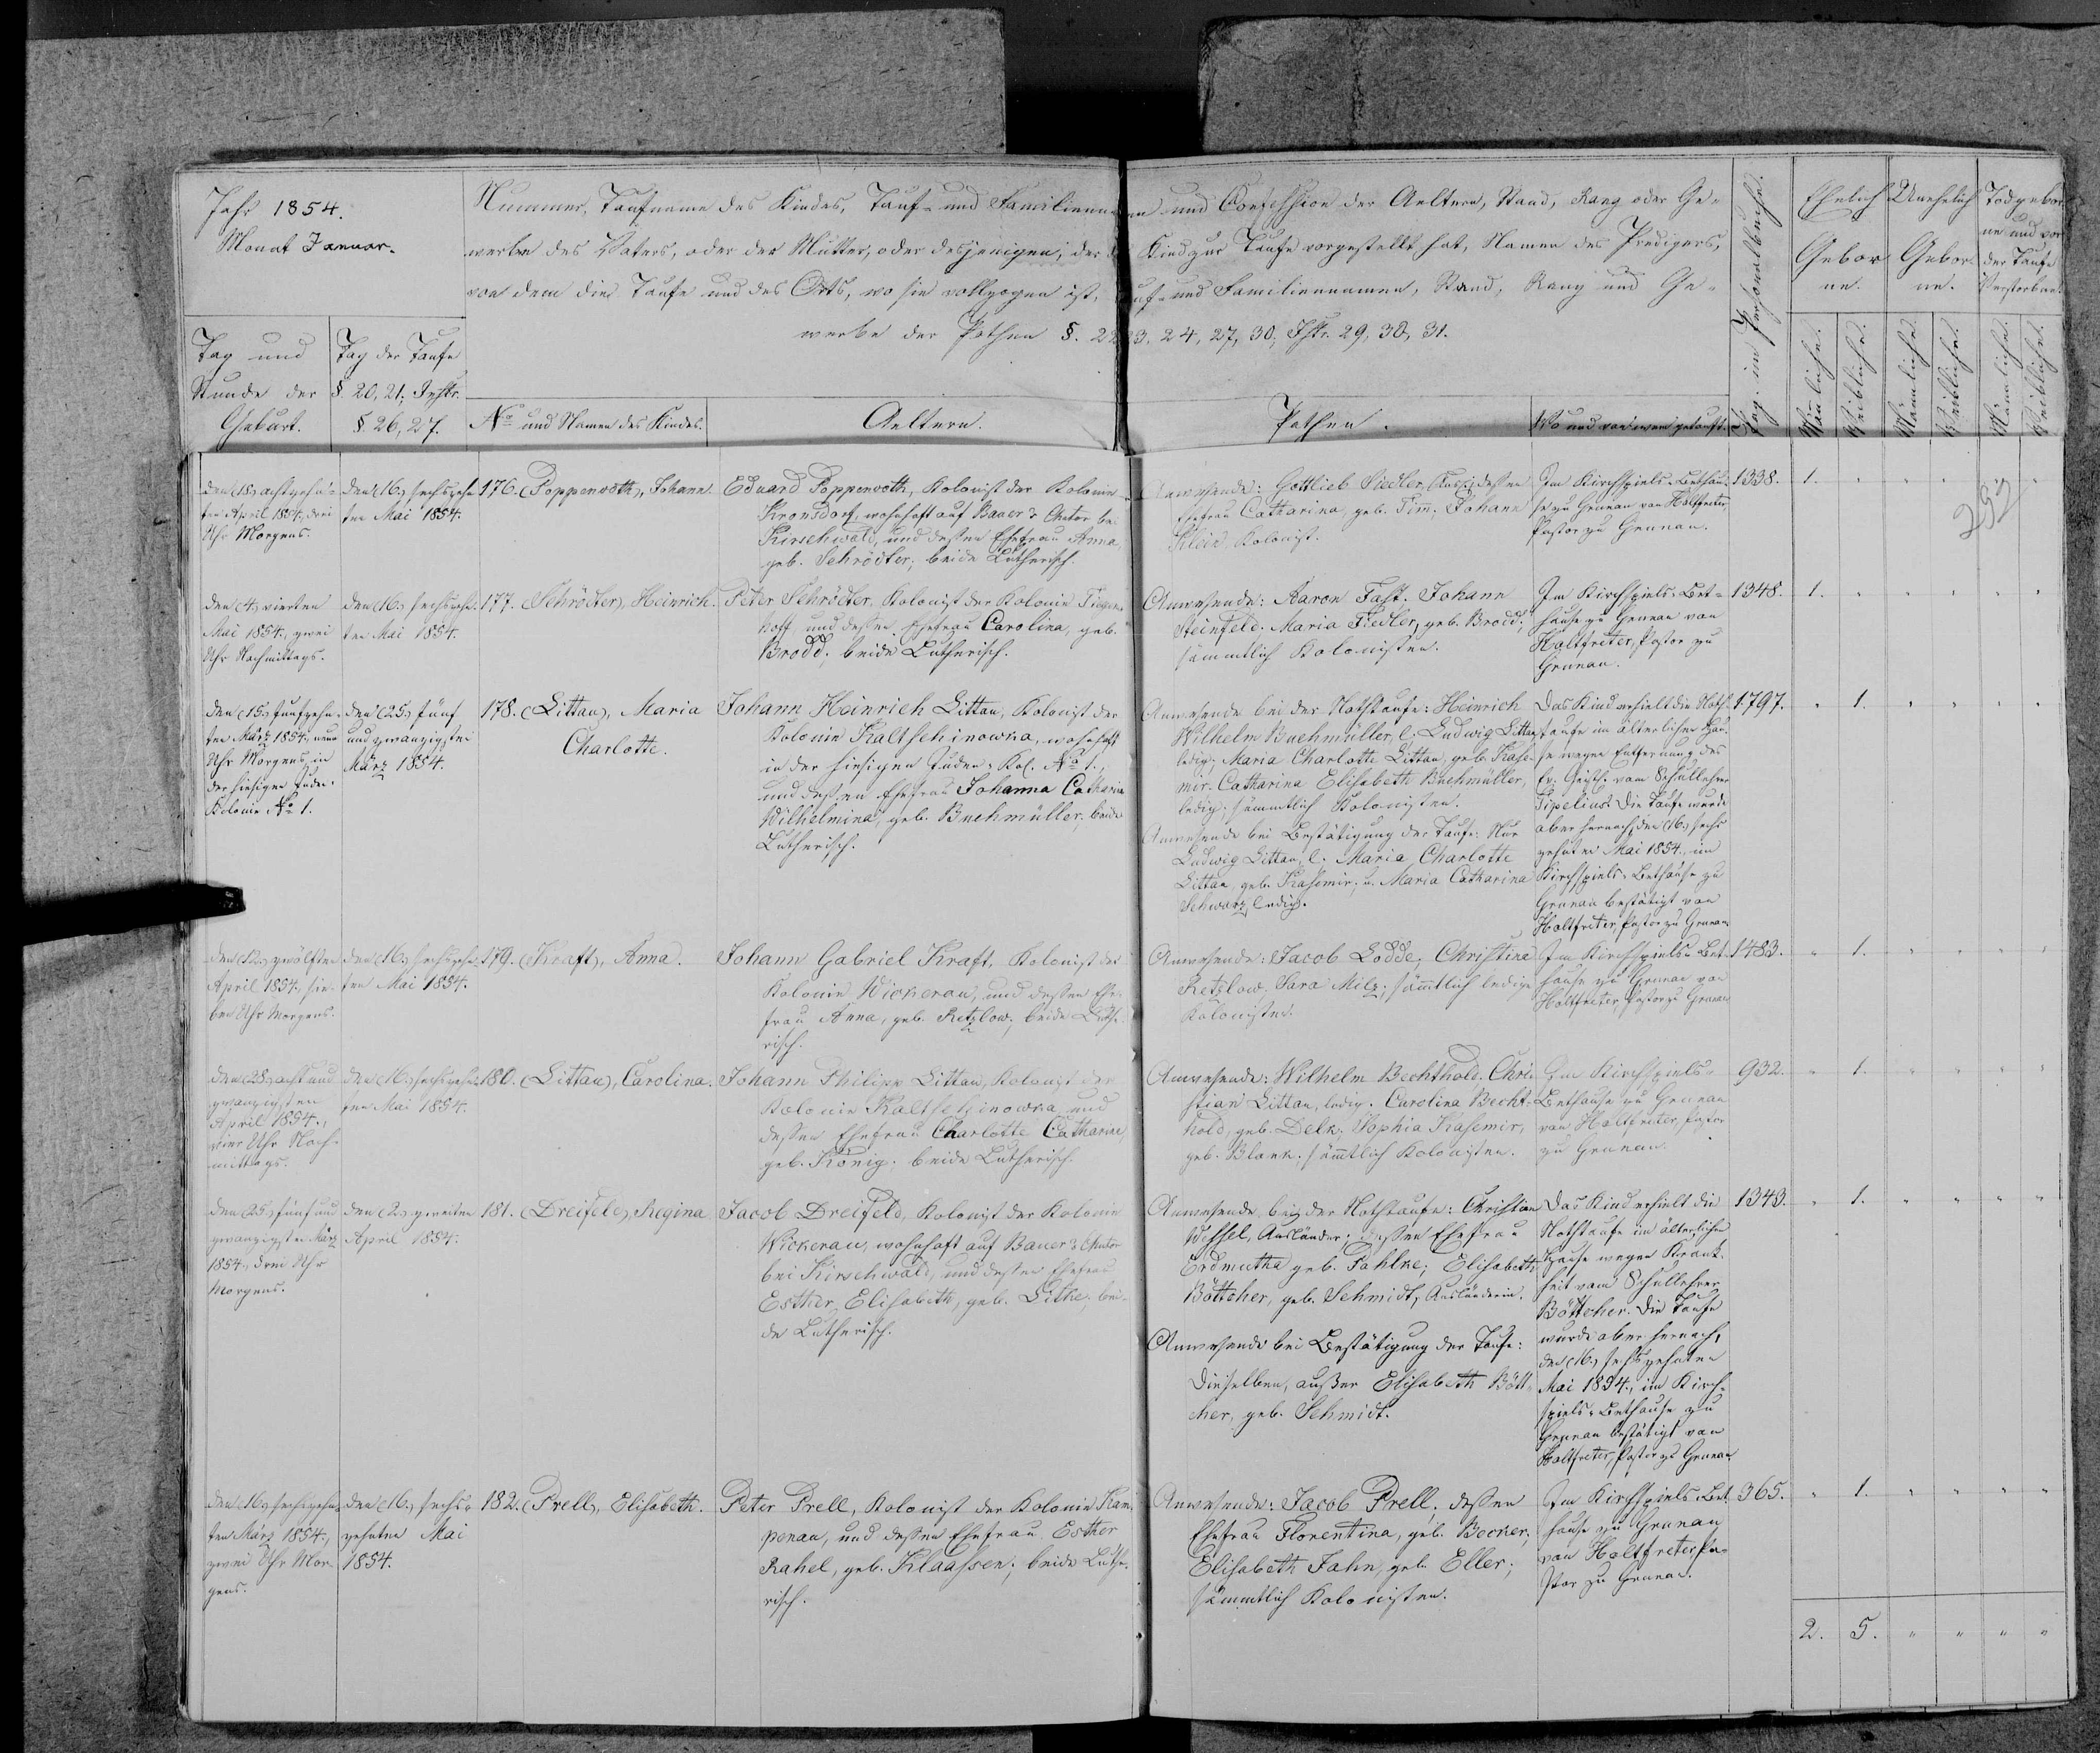 Jahr 1854.
Monat Januar.
Tag und
Stunde der
Geburt.
Tag der Taufe
§. 20, 21; Instr.
§. 26, 27.
Nummer, Taufname des Kindes, Tauf- und Familiennamen und Confession der Aeltern, Stand, Rang oder Ge-
werbe des Vaters, oder der Mutter, oder desjenigen, der das Kind zur Taufe vorgestellt hat, Namen des Predigers,
von dem die Taufe und des Orts, wo sie vollzogen ist, Tauf- und Familiennamen, Stand, Rang und Ge-
werbe der Pathen §. 22, 23, 24, 27, 30; Instr. 29, 30, 31.
No und Namen des Kindes.
Aeltern.
Pathen.
Wo und von wem getauft.
Pag. im Personalbuche.
Ehelich
Gebor
ne.
Unehelich
Gebor
ne.
Todgebor
ne und vor
der Taufe
Verstorbene.
Männliche.
Weibliche.
Männliche.
Weibliche.
Männliche.
Weibliche.
den (18) achtzehn-
ten April 1854, drei
Uhr Morgens.
den (16) sechszehn
ten Mai 1854.
176. (Poppenroth), Johann.
Eduard Poppenroth, Kolonist der Kolonie
Kronsdorf, wohnhaft auf Bauer's Chutor bei
Kirschwald, und dessen Ehefrau Anna,
geb. Schrödter; beide Lutherisch.
Anwesende: Gottlieb Siedler, dessen
Ehefrau Catharina, geb. Timm; Johann
Klein, Kolonist.
Im Kirchspiels-Bethau-
se zu Grunau von Holtfreter,
Pastor zu Grunau.
1338. 1.
den (4) vierten
Mai 1854, zwei
Uhr Nachmittags.
den (16) sechszehn-
ten Mai 1854.
177. (Schrödter), Heinrich.
Peter Schrödter, Kolonist der Kolonie Tiegen-
hoff und dessen Ehefrau Carolina, geb.
Brodd; beide Lutherisch.
Anwesende: Aaron Fast. Johann
Steinfeld. Maria Fiedler, geb. Brodd;
sämmtlich Kolonisten.
Im Kirchspiels-Bet-
hause zu Grunau von
Holtfreter, Pastor zu
Grunau.
1348. 1.
den (15) fünfzehn-
ten März 1854, neun
Uhr Morgens, in
der hiesigen Juden-
Kolonie No 1.
den (25) fünf
und zwanzigsten
März 1854.
178. (Littau), Maria
Charlotte.
Johann Heinrich Littau, Kolonist der
Kolonie Kaltschinowka, wohnhaft
in der hiesigen Juden-Kol. No 1.,
und dessen Ehefrau Johanna Catharina
Wilhelmina, geb. Buchmüller; beide
Lutherisch.
Anwesende bei der Nothtaufe: Heinrich
Wilhelm Buchmüller, l. Ludwig Littau,
ledig; Maria Charlotte Littau, geb. Kase-
mir. Catharina Elisabeth Buchmüller,
ledig; sämmtlich Kolonisten.
Anwesende bei Bestätigung der Taufe: Nur
Ludwig Littau, l. Maria Charlotte
Littau, geb. Kasemir; u. Maria Catharina
Schwarz, ledig.
Das Kind erhielt die Noth-
taufe im älterlichen Hau-
se wegen Entfernung des
Ev. Geistl. vom Schullehrer
Sipelius. Die Taufe wurde
aber hernach, den (16) sechs
zehnten Mai 1854, im
Kirchspiels-Bethause zu
Grunau bestätigt von
Holtfreter, Pastor zu Grunau
1797. 1.
den (12) zwölften
April 1854, sie-
ben Uhr Morgens.
den (16) sechszehn-
ten Mai 1854.
179. (Kraft), Anna.
Johann Gabriel Kraft, Kolonist der
Kolonie Wickerau, und dessen Ehe-
frau Anna, geb. Retzlow; beide Luthe-
risch.
Anwesende: Jacob Lodde, Christina
Retzlow. Sara Milz; sämtlich ledige
Kolonisten.
Im Kirchspiels-Bet-
hause zu Grunau von
Holtfreter, Pastor zu Grunau
1483. 1.
den (28) acht und
zwanzigsten
April 1854,
vier Uhr Nach-
mittags.
den (16) sechszehn-
ten Mai 1854.
180. (Littau), Carolina.
Johann Philipp Littau, Kolonist der
Kolonie Kaltschinowka und
dessen Ehefrau Charlotte Catharine,
geb. König; beide Lutherisch.
Anwesende: Wilhelm Bechthold. Chri-
stian Littau, ledig. Carolina Becht-
hold, geb. Delk; Sophia Kasemir,
geb. Blank; sämtlich Kolonisten.
Im Kirchspiels-
Bethause zu Grunau
von Holtfreter, Pastor
zu Grunau.
932. 1.
den (25) fünf und
zwanzigsten März
1854, drei Uhr
Morgens.
den (2) zweiten
April 1854.
181. (Dreifeld), Regina
Jacob Dreifeld, Kolonist der Kolonie
Wickerau, wohnhaft auf Bauer's Chutor
bei Kirschwald, und dessen Ehefrau
Esther Elisabeth, geb. Lithe; bei-
de Lutherisch.
Anwesende bei der Nothtaufe: Christian
Wessel, Ausländer; dessen Ehefrau
Erdmutha geb. Pahlke; Elisabeth
Böttcher, geb. Schmidt, Ausländerin.
Anwesende bei Bestätigung der Taufe:
Dieselben, außer Elisabeth Bött-
cher, geb. Schmidt.
Das Kind erhielt die
Nothtaufe im älterlichen
Hause wegen Krank-
heit vom Schullehrer
Böttcher. Die Taufe
wurde aber hernach,
den (16) sechszehnten
Mai 1854, im Kirch-
spiels-Bethause zu
Grunau bestätigt von
Holtfreter, Pastor zu Grunau
1343. 1.
den (16) sechszehn-
ten März 1854,
zwei Uhr Mor-
gens.
den (16) sechs-
zehnten Mai
1854.
182. (Prell), Elisabeth.
Peter Prell, Kolonist der Kolonie Kam-
penau, und dessen Ehefrau Esther
Rahel, geb. Klaassen; beide Luthe-
risch.
Anwesende: Jacob Prell; dessen
Ehefrau Florentina, geb. Becker;
Elisabeth Jahn, geb. Eller;
sämmtlich Kolonisten.
Im Kirchspiels-Bet-
hause zu Grunau
von Holtfreter, Pa-
stor zu Grunau.
365. 1.
2. 5.